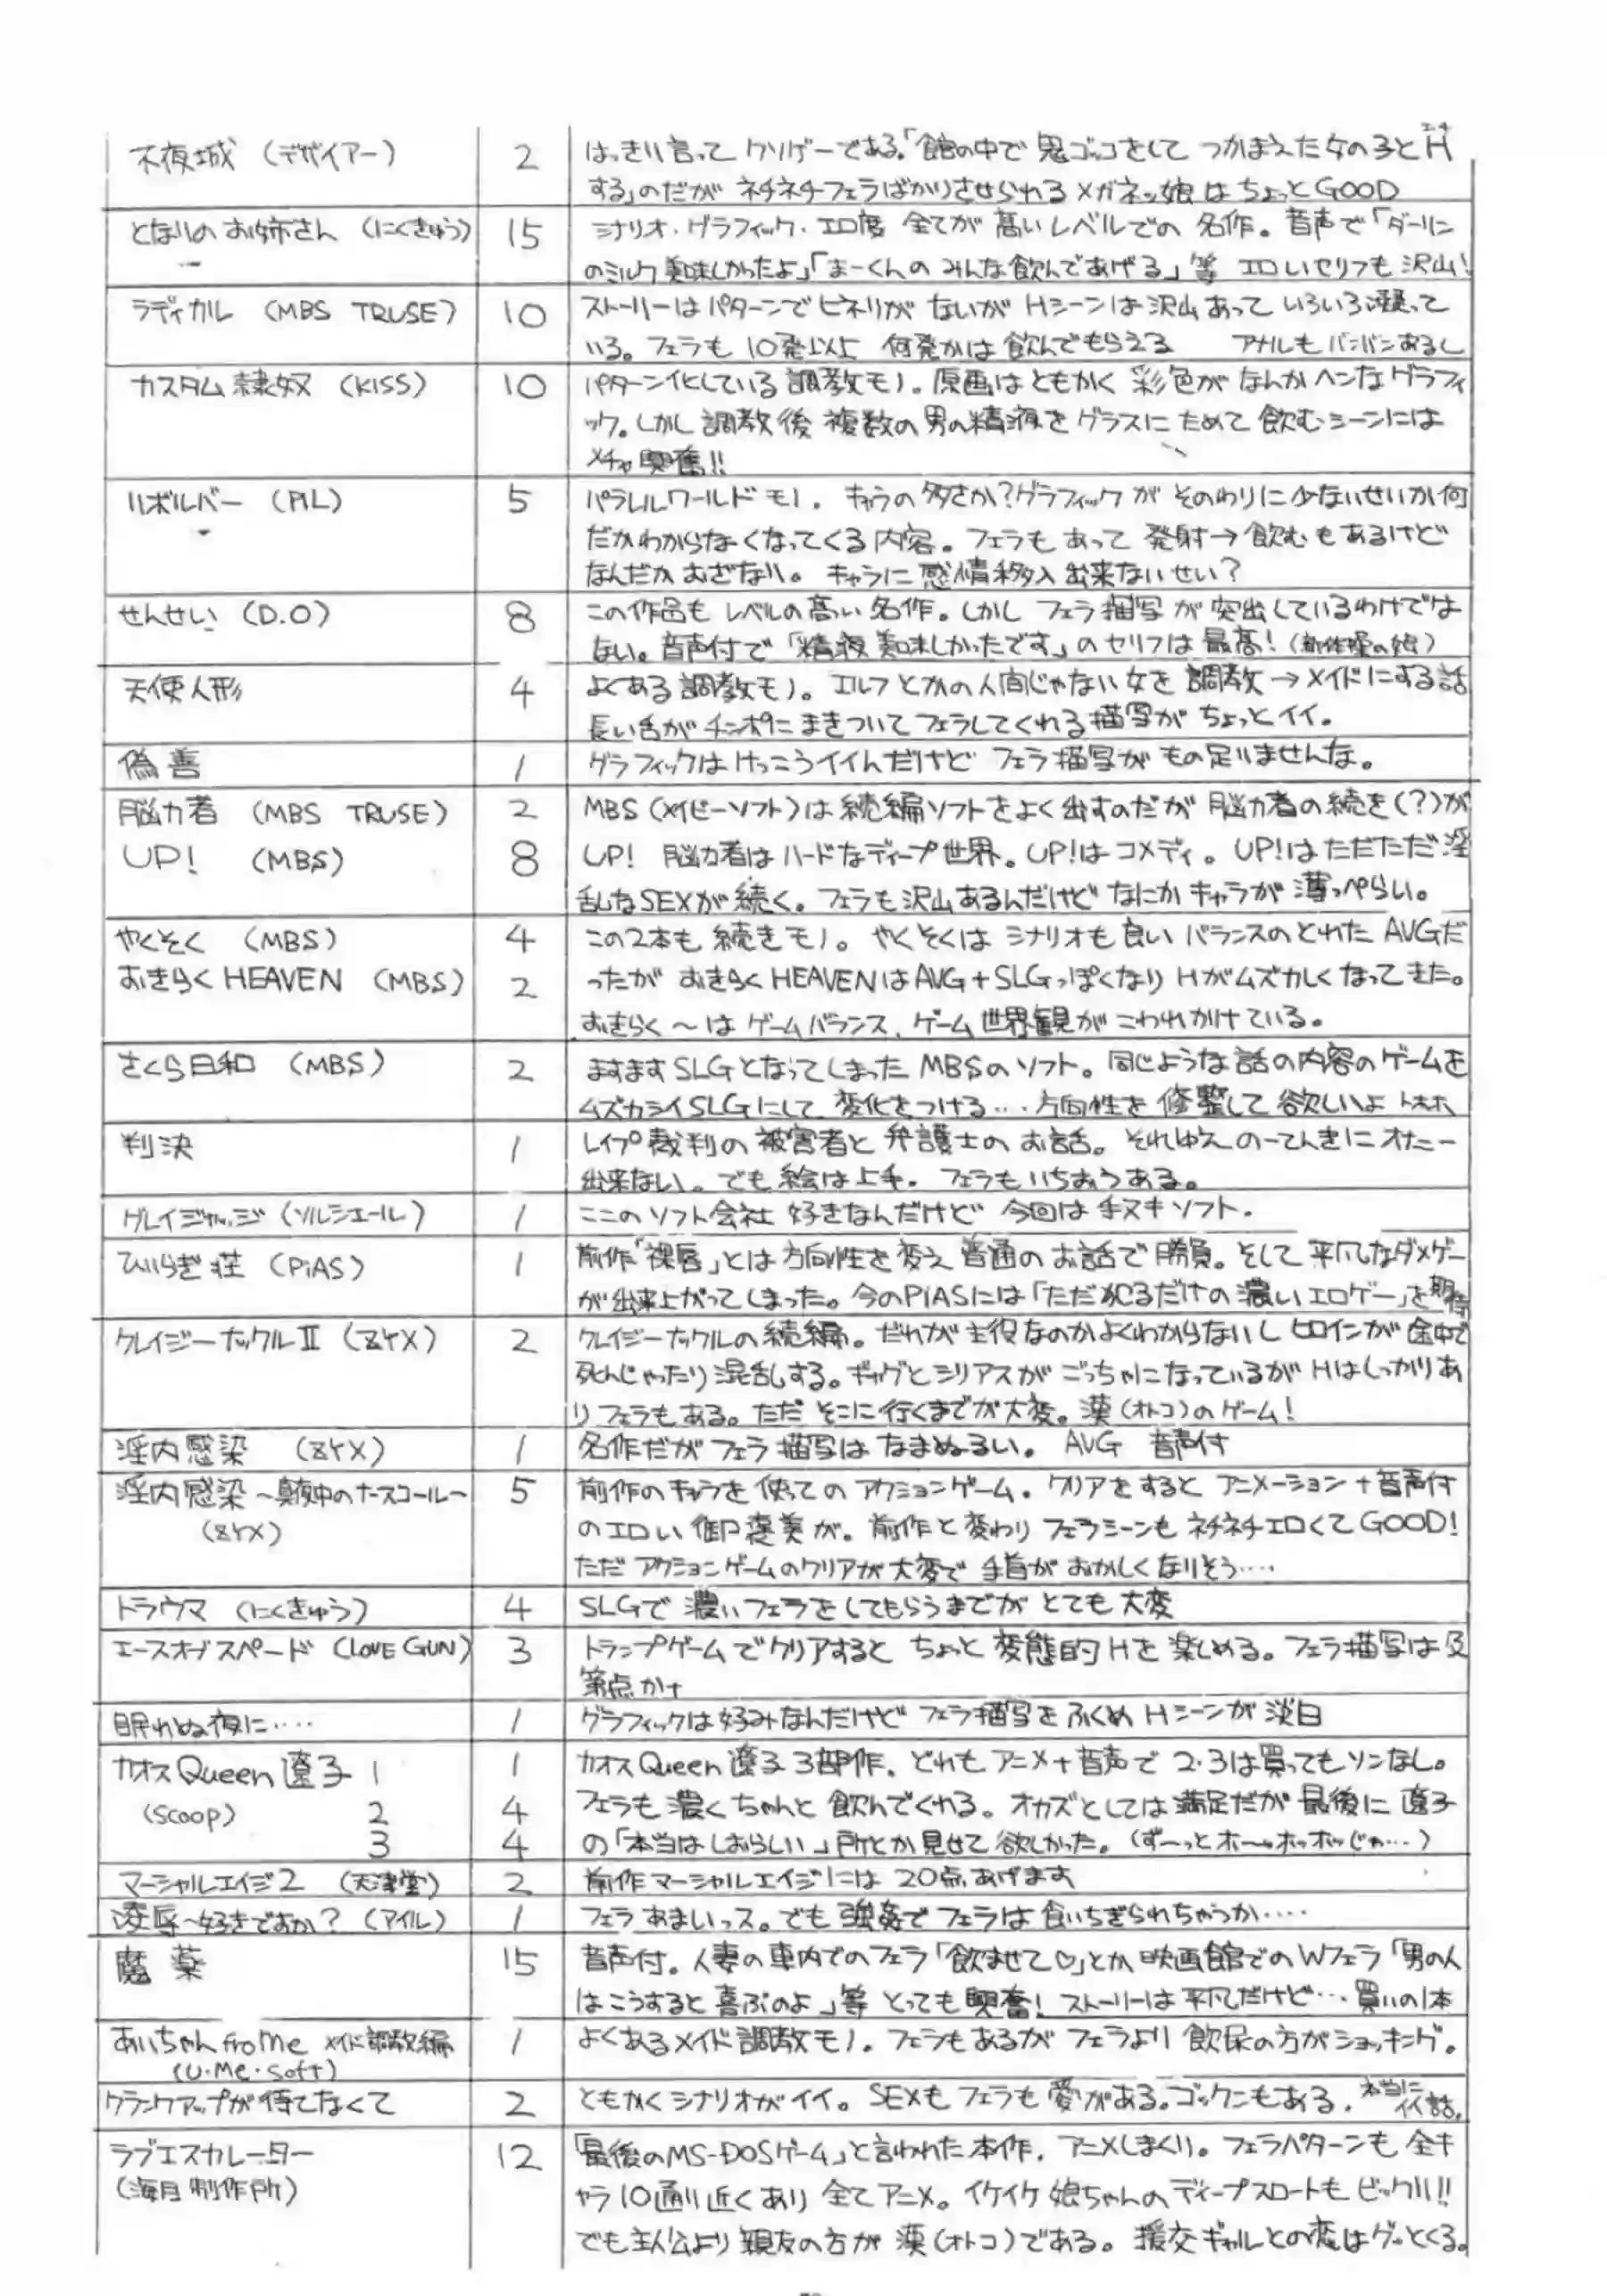 不夜城（デザイアー） 2 はっきり言ってクソゲーである。「館の中で鬼ゴッコをしてつかまえた女の子とH
する」のだがネチネチフェラばかりさせられるメガネッ娘はちょっとGOOD
となりのお姉さん（にくきゅう） 15 シナリオ・グラフィック・エロ度 全てが高いレベルでの名作。音声で「ダーリン
のミルク美味しかったよ」「まーくんのみんな飲んであげる」等 エロいセリフも沢山！
ラディカル（MBS TRUSE） 10 ストーリーはパターンでヒネリがないがHシーンは沢山あっていろいろ凝って
いる。フェラも10発以上 何発かは飲んでもらえる アナルもバンバンあるし
カスタム隷奴（KISS） 10 パターン化している調教モノ。原画はともかく彩色がなんかヘンなグラフィ
ック。しかし調教後複数の男の精液をグラスにためて飲むシーンには
メチャ興奮!!
リボルバー（PIL） 5 パラレルワールドモノ。キャラの多さか？グラフィックがそのわりに少ないせいか何
だかわからなくなってくる内容。フェラもあって発射→飲むもあるけど
なんだかおざなり。キャラに感情移入出来ないせい？
せんせい（D.O） 8 この作品もレベルの高い名作。しかしフェラ描写が突出しているわけでは
ない。音声付で「精液美味しかったです」のセリフは最高！
天使人形 4 よくある調教モノ。エルフとかの人間じゃない女を調教→メイドにする話
長い舌がチンポにまきついてフェラしてくれる描写がちょっとイイ。
偽善 1 グラフィックはけっこうイイんだけどフェラ描写がもの足りませんな。
脳力者（MBS TRUSE） 2 MBS（メイビーソフト）は続編ソフトをよく出すのだが脳力者の続き（？）が
UP!（MBS） 8 UP! 脳力者はハードなディープ世界。UP!はコメディ。UP!はただただ淫
乱なSEXが続く。フェラも沢山あるんだけどなにかキャラが薄っぺらい。
やくそく（MBS） 4 この2本も続きモノ。やくそくはシナリオも良いバランスのとれたAVGだ
おきらくHEAVEN（MBS） 2 ったがおきらくHEAVENはAVG+SLGっぽくなりHがムズカしくなってきた。
おきらく～はゲームバランス、ゲーム世界観がこわれかけている。
さくら日和（MBS） 2 ますますSLGとなってしまったMBSのソフト。同じような話の内容のゲームを
ムズカシイSLGにして変化をつける…方向性を修整して欲しいよ トホホ
判決 1 レイプ裁判の被害者と弁護士のお話。それゆえのーてんきにオナニー
出来ない。でも絵は上手。フェラもいちおうある。
グレイジャッジ（ソルシエール） 1 ここのソフト会社好きなんだけど今回は手ヌキソフト。
ひいらぎ荘（PiAS） 1 前作「裸唇」とは方向性を変え普通のお話で勝負。そして平凡なダメゲー
が出来上がってしまった。今のPIASには「ただ犯るだけの濃いエロゲー」を期待
クレイジーナックルⅡ（ZYX） 2 クレイジーナックルの続編。だれが主役なのかよくわからないしヒロインが途中で
死んじゃったり混乱する。ギャグとシリアスがごっちゃになっているがHはしっかりあ
りフェラもある。ただそこに行くまでが大変。漢（オトコ）のゲーム！
淫内感染（ZYX） 1 名作だがフェラ描写はなまぬるい。AVG 音声付
淫内感染～真夜中のナースコール～ 5 前作のキャラを使ってのアクションゲーム。クリアをするとアニメーション+音声付
（ZYX） のエロい御褒美が。前作と変わりフェラシーンもネチネチエロくてGOOD!
ただアクションゲームのクリアが大変で手首がおかしくなりそう….
トラウマ（にくきゅう） 4 SLGで濃いフェラをしてもらうまでがとても大変
エースオブスペード（LOVE GUN） 3 トランプゲームでクリアするとちょっと変態的Hを楽しめる。フェラ描写は及
第点かナ
眠れぬ夜に…. 1 グラフィックは好みなんだけどフェラ描写をふくめHシーンが淡白
カオスQueen遼子 1 1 カオスQueen遼子3部作。どれもアニメ+音声で2・3は買ってもソンなし。
（Scoop） 2 4 フェラも濃くちゃんと飲んでくれる。オカズとしては満足だが最後に遼子
3 4 の「本当はしおらしい」所とか見せて欲しかった。（ず～っとホ～ッホッホッじゃ…）
マーシャルエイジ2（天津堂） 2 前作マーシャルエイジには20点あげます
凌辱～好きですか？（アイル） 1 フェラあまいっス。でも強姦でフェラは食いちぎられちゃうか….
魔薬 15 音声付。人妻の車内でのフェラ「飲ませて♡」とか映画館でのWフェラ「男の人
はこうすると喜ぶのよ」等とっても興奮！ストーリーは平凡だけど…買いの1本
あいちゃんfroMe メイド調教編 1 よくあるメイド調教モノ。フェラもあるがフェラより飲尿の方がショッキング。
（U・Me・Soft）
クランクアップが待てなくて 2 ともかくシナリオがイイ。SEXもフェラも愛がある。ゴックンもある。本当にイイ話。
ラブエスカレーター 12 「最後のMS-DOSゲーム」と言われた本作。アニメしまくり。フェラパターンも全キ
（海月製作所） ャラ10通り近くあり全てアニメ。イケイケ娘ちゃんのディープスロートもビックリ!!
でも主人公より親友の方が漢（オトコ）である。援交ギャルとの恋はグッとくる。